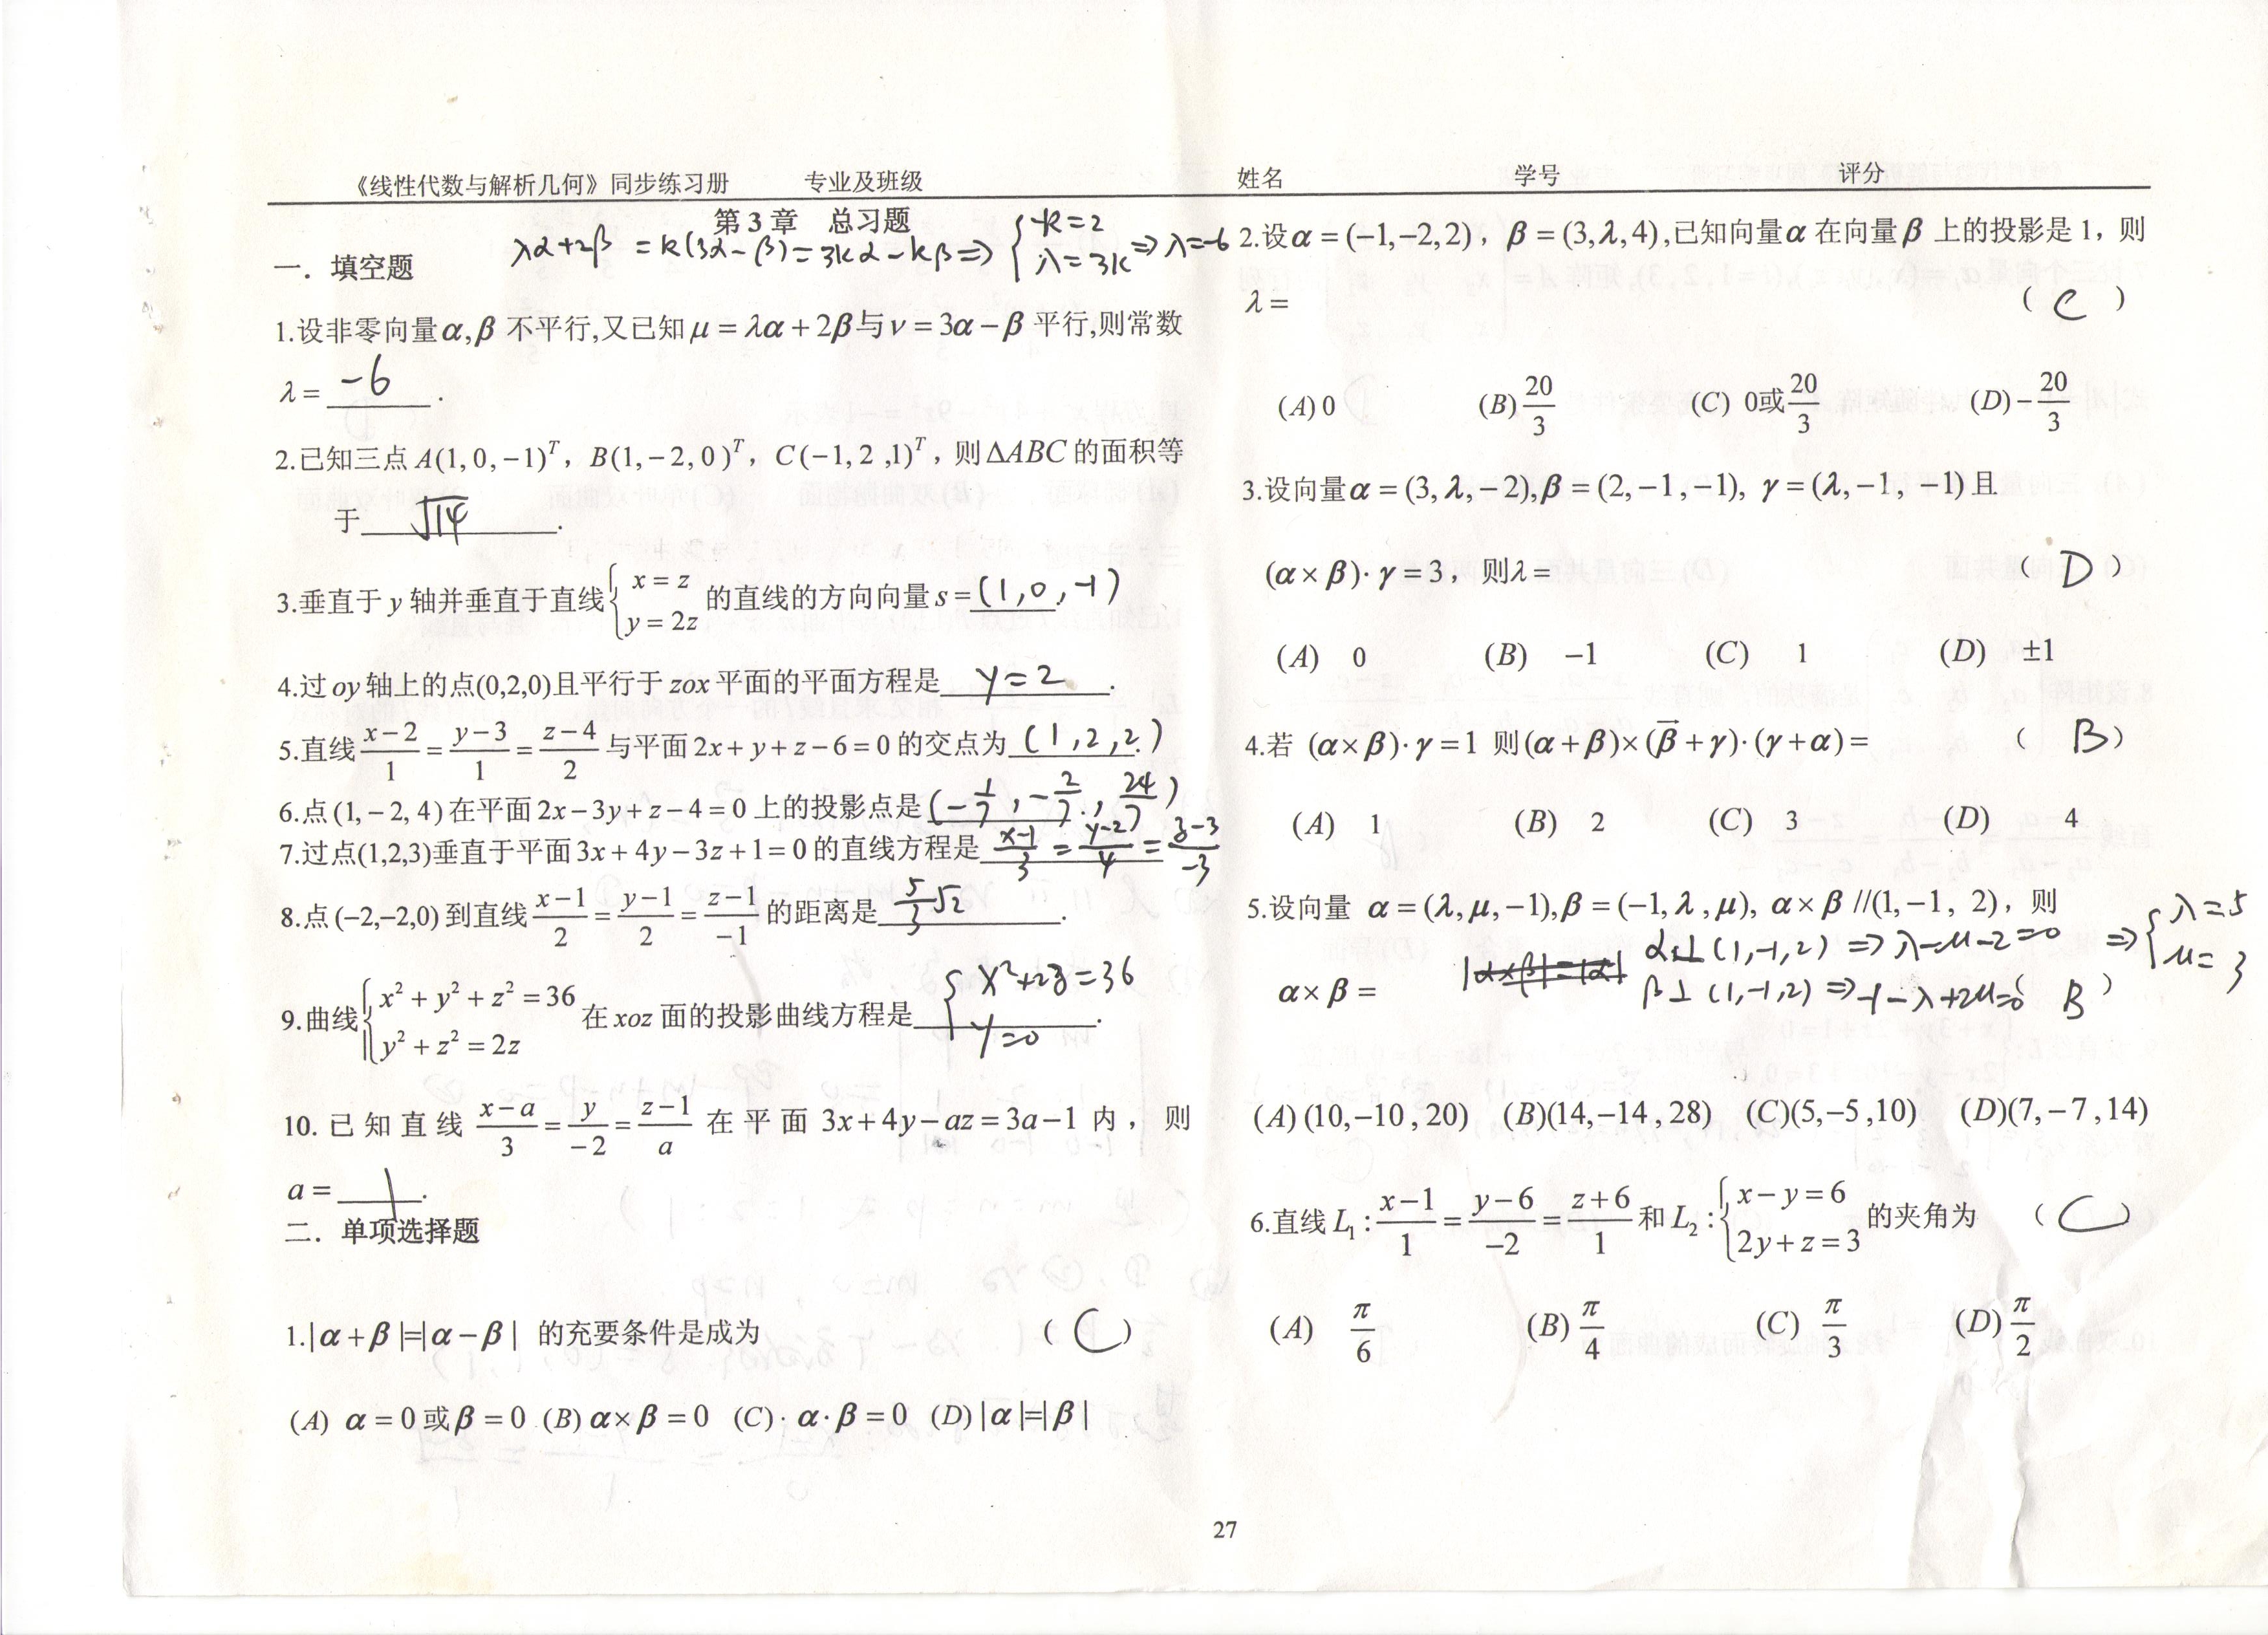 《线性代数与解析几何》同步练习册 专业及班级 姓名 学号 评分
第3章 总习题
λα+2β = k(3α-β) = 3kα-kβ ⇒ { -k=2 λ=3k ⇒ λ=-6
一. 填空题
1.设非零向量α,β 不平行,又已知 μ = λα + 2β 与 ν = 3α − β 平行,则常数
λ = -6 .
2.已知三点 A(1, 0, −1)^T, B(1, −2, 0)^T, C(−1, 2 ,1)^T, 则 ΔABC 的面积等
于 √14 .
3.垂直于 y 轴并垂直于直线 { x = z y = 2z 的直线的方向向量 s = (1,0,-1)
4.过 oy 轴上的点(0,2,0)且平行于 zox 平面的平面方程是 y=2 .
5.直线 (x−2)/1 = (y−3)/1 = (z−4)/2 与平面 2x + y + z − 6 = 0 的交点为 (1,2,2)
6.点 (1, −2, 4) 在平面 2x − 3y + z − 4 = 0 上的投影点是 (-1/7, -2/7, 24/7)
7.过点(1,2,3)垂直于平面 3x + 4y − 3z + 1 = 0 的直线方程是 (x-1)/3 = (y-2)/4 = (z-3)/-3
8.点 (−2,−2,0) 到直线 (x−1)/2 = (y−1)/2 = (z−1)/−1 的距离是 5/3 √2 .
9.曲线 { x² + y² + z² = 36 y² + z² = 2z 在 xoz 面的投影曲线方程是 { x²+2z=36 y=0 .
10. 已知直线 (x−a)/3 = y/−2 = (z−1)/a 在平面 3x + 4y − az = 3a − 1 内, 则
a = 1 .
二. 单项选择题
1.|α + β |=|α − β | 的充要条件是成为 ( C )
(A) α = 0 或 β = 0 (B) α × β = 0 (C) · α · β = 0 (D) | α |=| β |
2.设 α = (−1, −2, 2), β = (3, λ, 4),已知向量 α 在向量 β 上的投影是 1, 则
λ = ( C )
(A) 0 (B) 20/3 (C) 0或 20/3 (D) − 20/3
3.设向量 α = (3, λ, − 2), β = (2, −1, −1), γ = (λ, −1, −1) 且
(α × β) · γ = 3, 则 λ = ( D )
(A) 0 (B) −1 (C) 1 (D) ±1
4.若 (α × β) · γ = 1 则 (α + β) × (β⃗ + γ) · (γ + α) = ( B )
(A) 1 (B) 2 (C) 3 (D) 4
5.设向量 α = (λ, μ, −1), β = (−1, λ , μ), α × β //(1, −1, 2), 则
α⊥(1,-1,2) ⇒ λ-μ-2=0 ⇒ { λ=5 μ=3
α × β = |α×β|=|α| β⊥(1,-1,2) ⇒ -1-λ+2μ=0 ( B )
(A) (10, −10 , 20) (B)(14, −14 , 28) (C)(5, −5 , 10) (D)(7, − 7 , 14)
6.直线 L₁ : (x−1)/1 = (y−6)/−2 = (z+6)/1 和 L₂ : { x − y = 6 2y + z = 3 的夹角为 ( C )
(A) π/6 (B) π/4 (C) π/3 (D) π/2
27